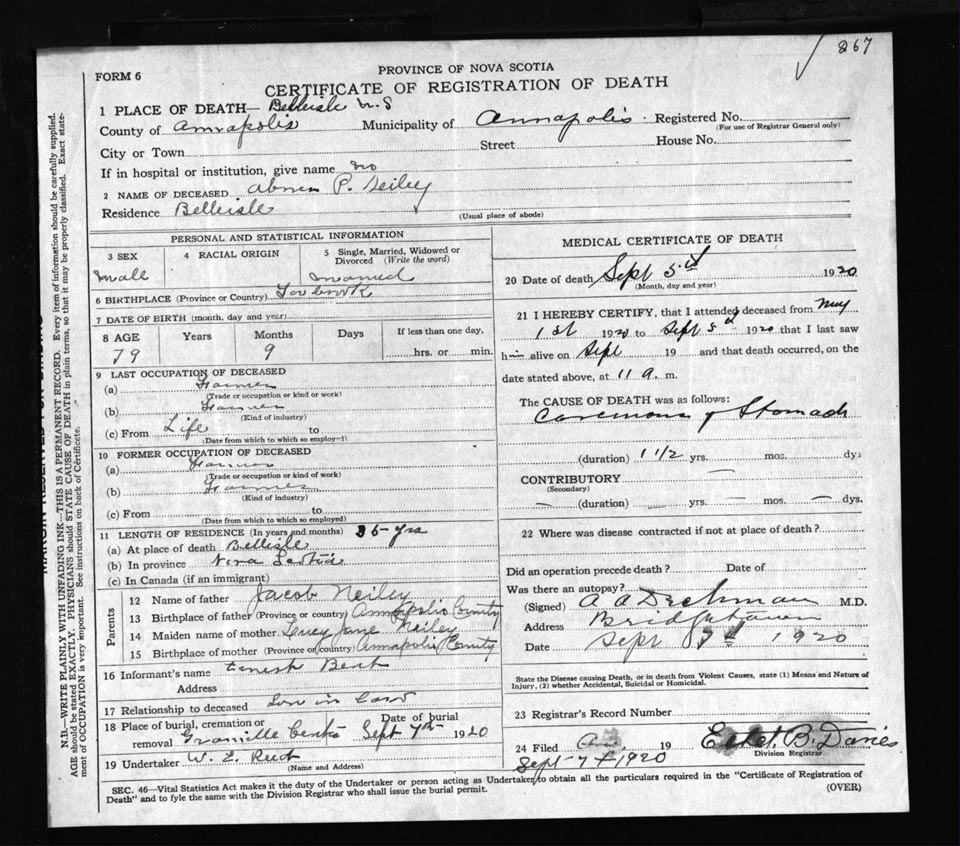 267
FORM 6
PROVINCE OF NOVA SCOTIA
CERTIFICATE OF REGISTRATION OF DEATH
1 PLACE OF DEATH— Belleisle N.S
County of Annapolis Municipality of Annapolis Registered No.
(For use of Registrar General only)
City or Town Street House No.
If in hospital or institution, give name no
2 NAME OF DECEASED P. Neiley
Residence Belleisle
(Usual place of abode)
PERSONAL AND STATISTICAL INFORMATION
3 SEX 4 RACIAL ORIGIN 5 Single, Married, Widowed or Divorced (Write the word)
Male Married
6 BIRTHPLACE (Province or Country) Torbrook
7 DATE OF BIRTH (month, day and year)
8 AGE Years Months Days If less than one day,
79 9 hrs. or min.
9 LAST OCCUPATION OF DECEASED
(a) Farmer
(Trade or occupation or kind or work)
(b) Farmer
(Kind of industry)
(c) From Life to
(Date from which to which so employ—)
10 FORMER OCCUPATION OF DECEASED
(a) Farmer
(Trade or occupation or kind of work)
(b) Farmer
(Kind of industry)
(c) From to
(Date from which to which so employed)
11 LENGTH OF RESIDENCE (In years and months) 35 yrs
(a) At place of death Bellisle
(b) In province Nova Scotia
(c) In Canada (if an immigrant)
Parents
12 Name of father Jacob Neiley
13 Birthplace of father (Province or country) Annapolis County
14 Maiden name of mother Lucy Jane Neiley
15 Birthplace of mother (Province or country) Annapolis County
16 Informant's name Bent
Address
17 Relationship to deceased Son in Law
18 Place of burial, cremation or Date of burial
removal Granville Sept 7th 1920
19 Undertaker W. E. Reed
(Name and Address)
MEDICAL CERTIFICATE OF DEATH
20 Date of death Sept 5th 1920
(Month, day and year)
21 I HEREBY CERTIFY, that I attended deceased from May
1st 1920 to Sept 5 1920 that I last saw
him alive on Sept 19 and that death occurred, on the
date stated above, at 11 a. m.
The CAUSE OF DEATH was as follows:
Stomach
(duration) 1 1/2 yrs. mos. dys
CONTRIBUTORY
(Secondary)
(duration) yrs. mos. dys.
22 Where was disease contracted if not at place of death?
Did an operation precede death? Date of
Was there an autopsy?
(Signed) A A Dechman M.D.
Address Bridgetown
Date Sept 1920
State the Disease causing Death, or in death from Violent Causes, state (1) Means and Nature of
Injury, (2) whether Accidental, Suicidal or Homicidal.
23 Registrar's Record Number
24 Filed 19 B. Davies
Division Registrar
Sept 7th 1920
SEC. 46—Vital Statistics Act makes it the duty of the Undertaker or person acting as Undertaker to obtain all the particulars required in the "Certificate of Registration of
Death" and to fyle the same with the Division Registrar who shall issue the burial permit. (OVER)
N.B.—WRITE PLAINLY WITH UNFADING INK—THIS IS A PERMANENT RECORD. Every item of information should be carefully supplied.
AGE should be stated EXACTLY. PHYSICIANS should STATE CAUSE OF DEATH in plain terms, so that it may be properly classified. Exact state-
ment of OCCUPATION is very important. See instructions on back of Certificate.